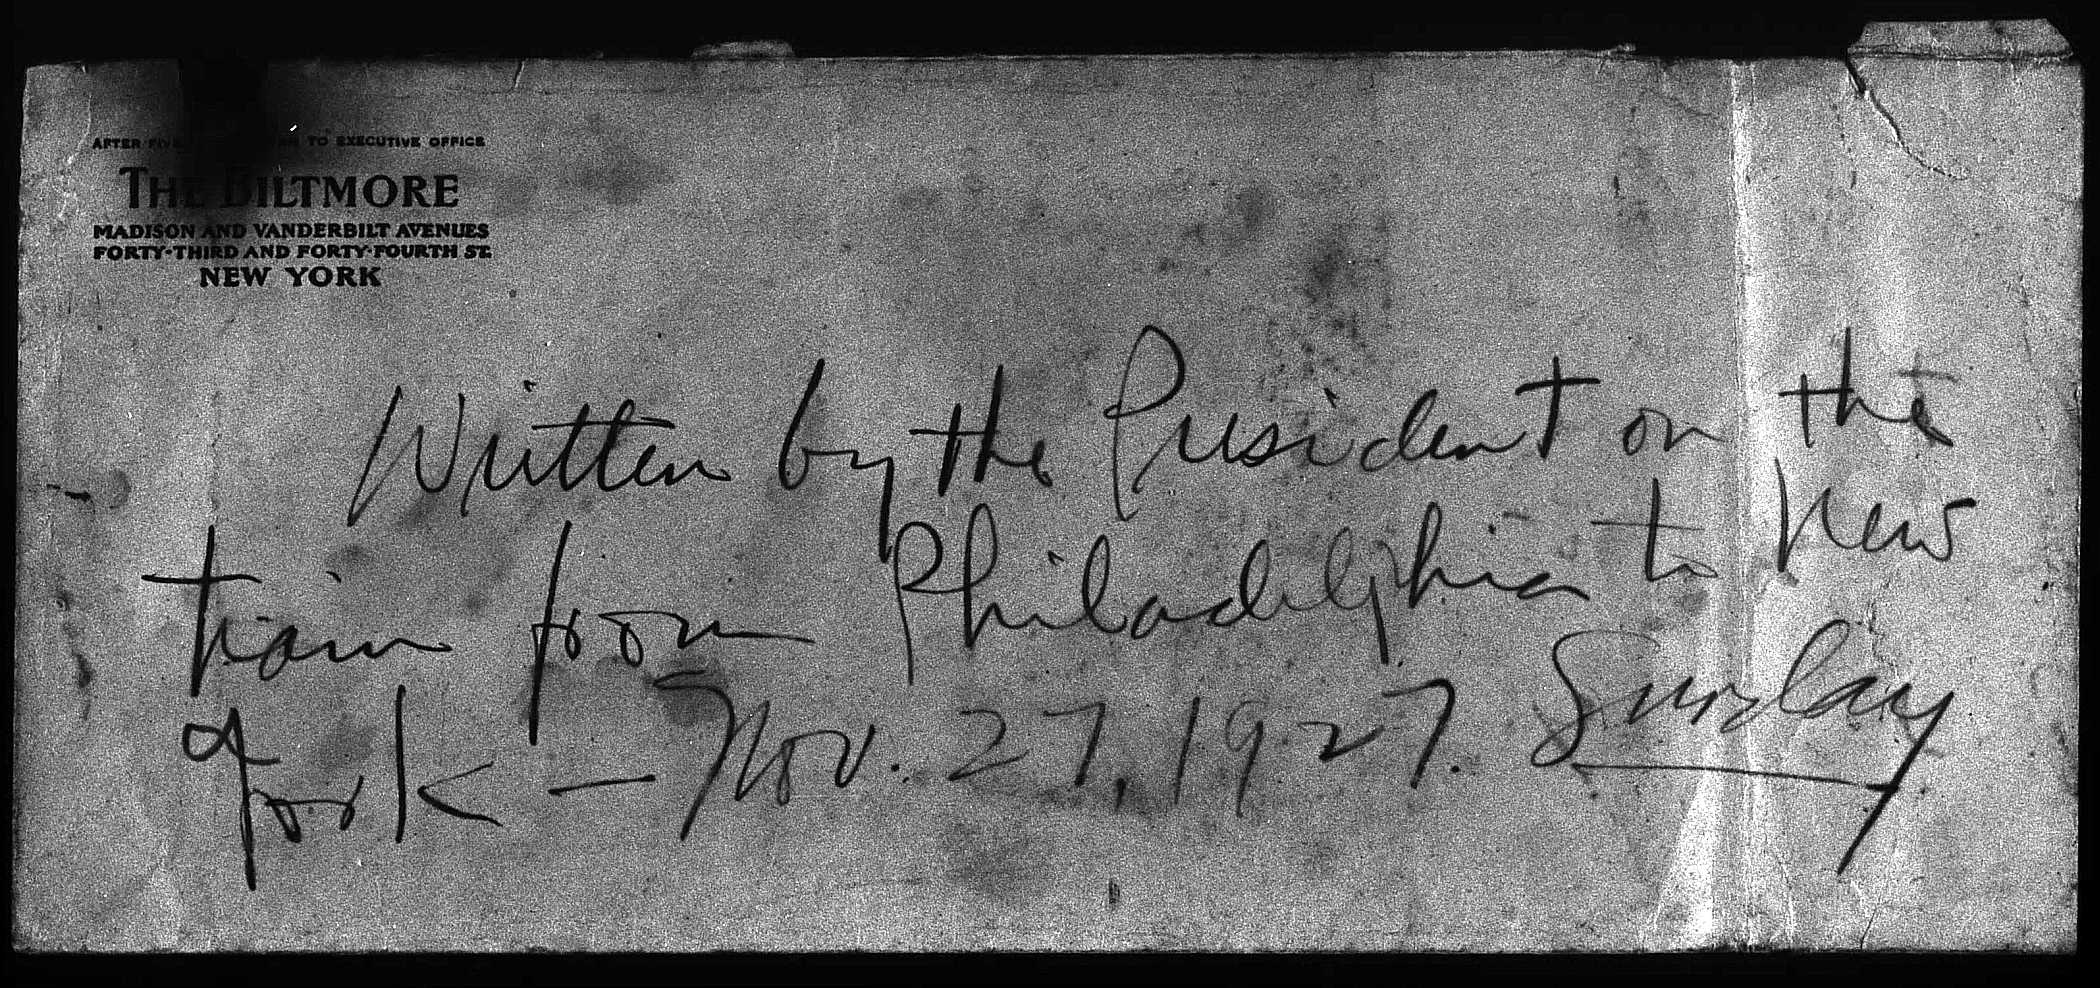 AFTER FIVE TO EXECUTIVE OFFICE
THE BILTMORE
MADISON AND VANDERBILT AVENUES
FORTY-THIRD AND FORTY-FOURTH ST.
NEW YORK
Written by the President on the
train from Philadelphia to New
York - Nov. 27, 1927. Sunday